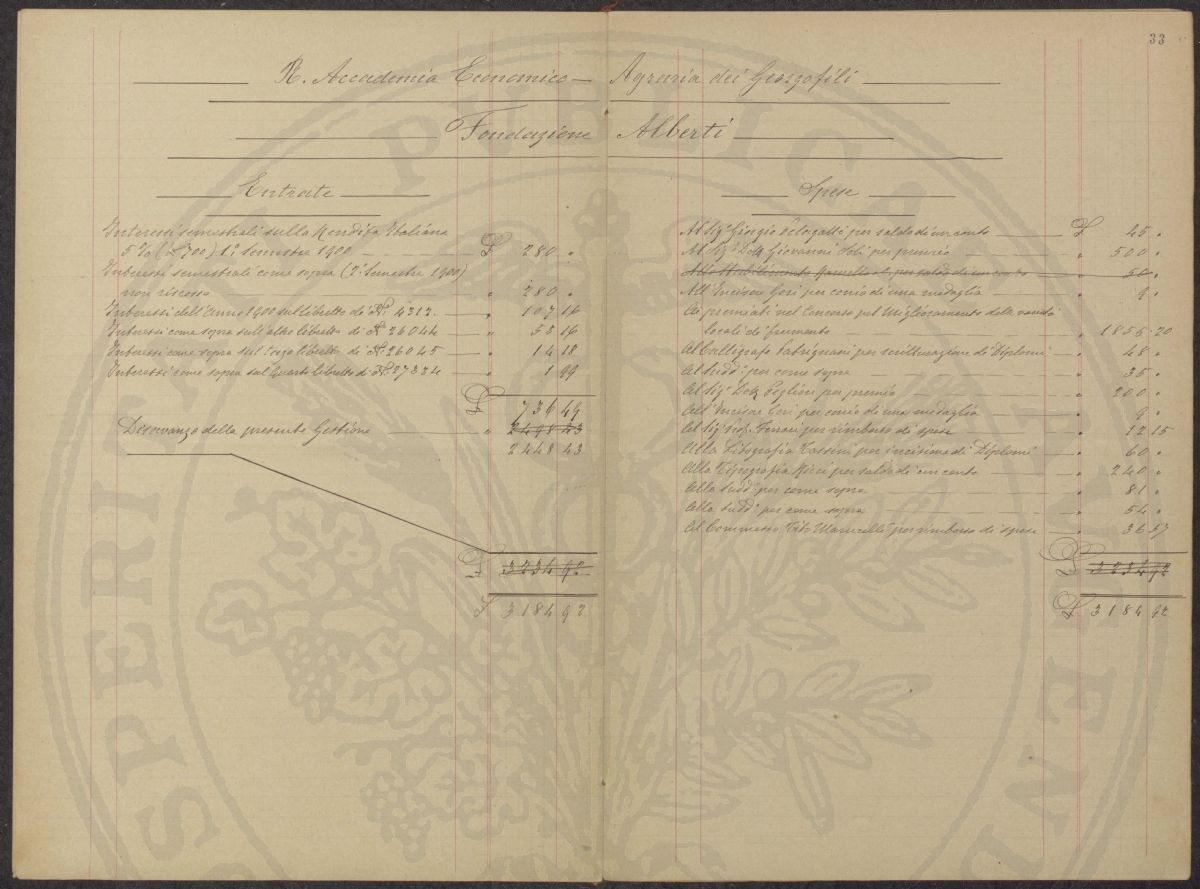 33
R. Accademia Economico - Agraria dei Georgofili
Fondazione Alberti
Entrate
Interessi semestrali sulla Rendita Italiana
5 % (£ 700) 1° Semestre 1900 £ 280 "
Interessi semestrali come sopra (2° Semestre 1900)
non riscosso " 280 "
Interessi dell'Anno 1900 sul libretto di N° 4212. " 107 16
Interessi come sopra sull'altro libretto di N° 26044 " 53 16
Interessi come sopra sul terzo libretto di N° 26045 " 14 18
Interessi come sopra sul quarto libretto di N° 27334 " 1 99
£ 736 49
Disavanzo della presente Gestione " 2498 43
2448 43
£ 3234 92
£ 3184 92
Spese
Al Sig. Giorgio per saldo di un conto £ 45 "
Al Sig. Dott. Giovanni per premio " 500 "
Allo Stabilimento per saldo di un conto " 50 "
All'Incisore Gori per conio di una medaglia " 9 "
Ai premiati nel Concorso pel Miglioramento delle varietà
locali di frumento " 1855 20
Al Calligrafo Fabrignani per scritturazione di Diplomi " 48 "
Al sudd° per come sopra " 35 "
Al Sig. Dott. Peglion per premio " 200 "
All'Incisore Gori per conio di una medaglia " 9 "
Al Sig. Prof. Ferrari per rimborso di spese " 12 15
Alla Litografia Tassini per incisione di Diplomi " 60 "
Alla Tipografia Ricci per saldo di un conto " 240 "
Alla sudd° per come sopra " 81 "
Alla sudd° per come sopra " 54 "
Al Commesso Tito Marucelli per rimborso di spese " 36 57
£ 3234 92
£ 3184 92